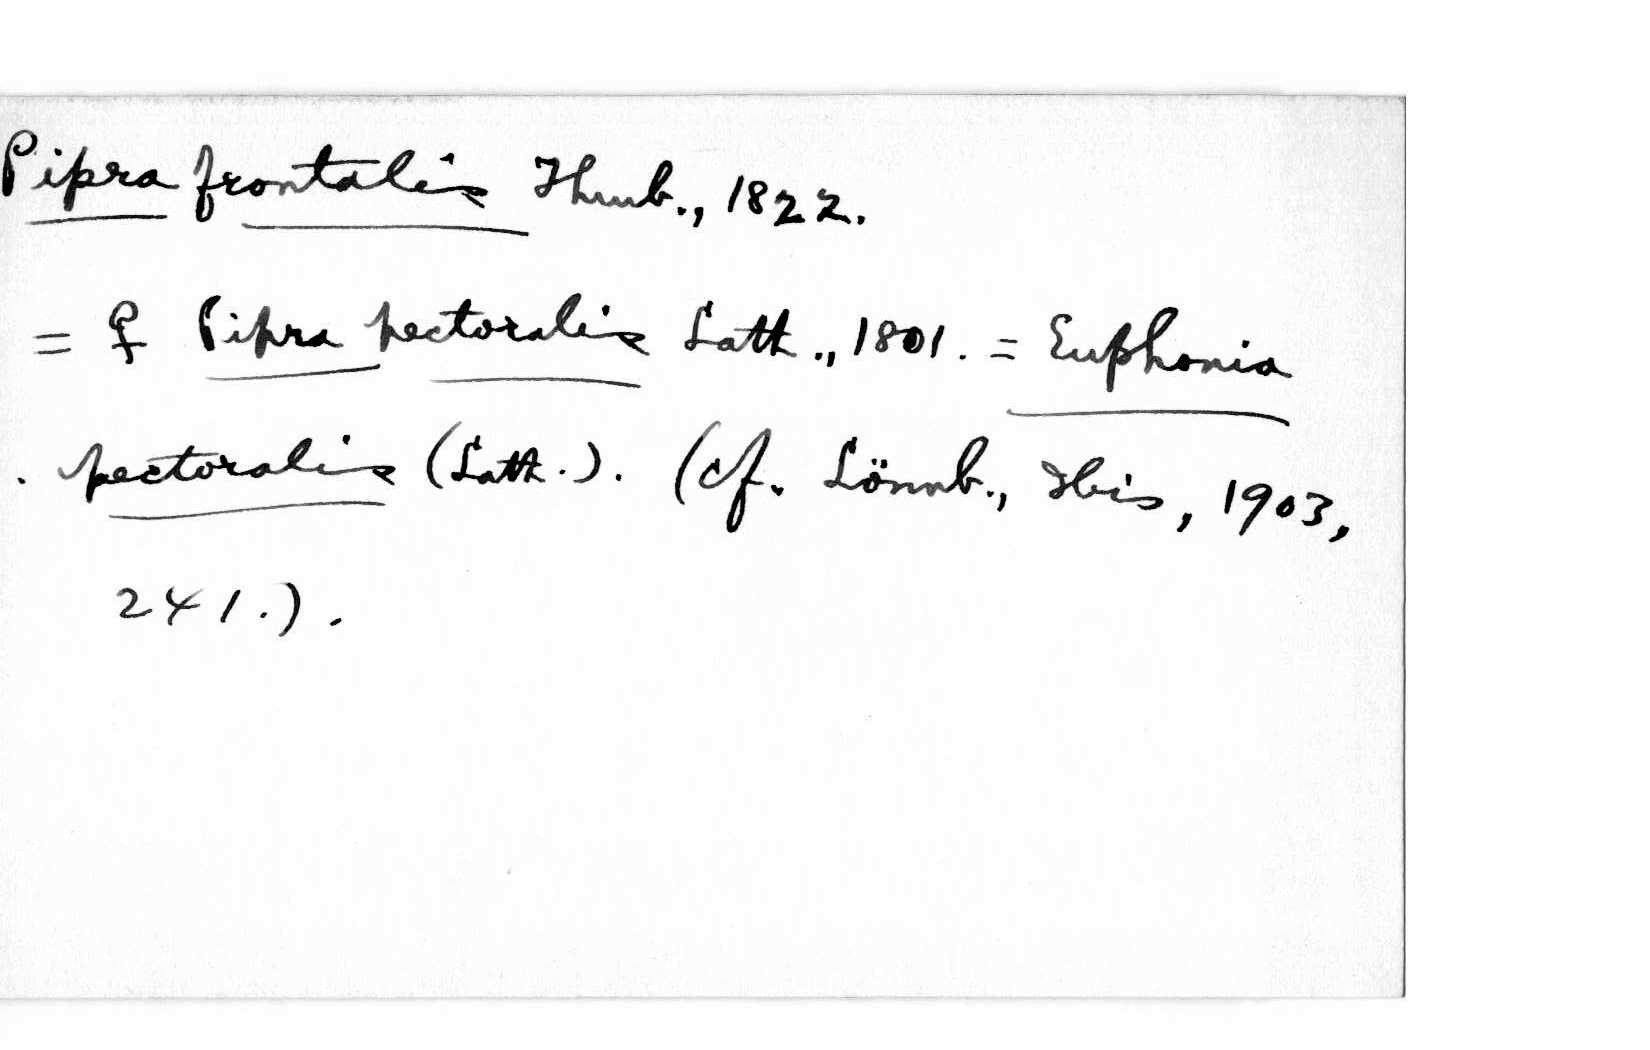 Pipra frontalis Thunb., 1822.
= ♀ Pipra pectoralis Lath., 1801. = Euphonia
pectoralis (Lath.). (cf. Lönnb., Ibis, 1903,
241.).